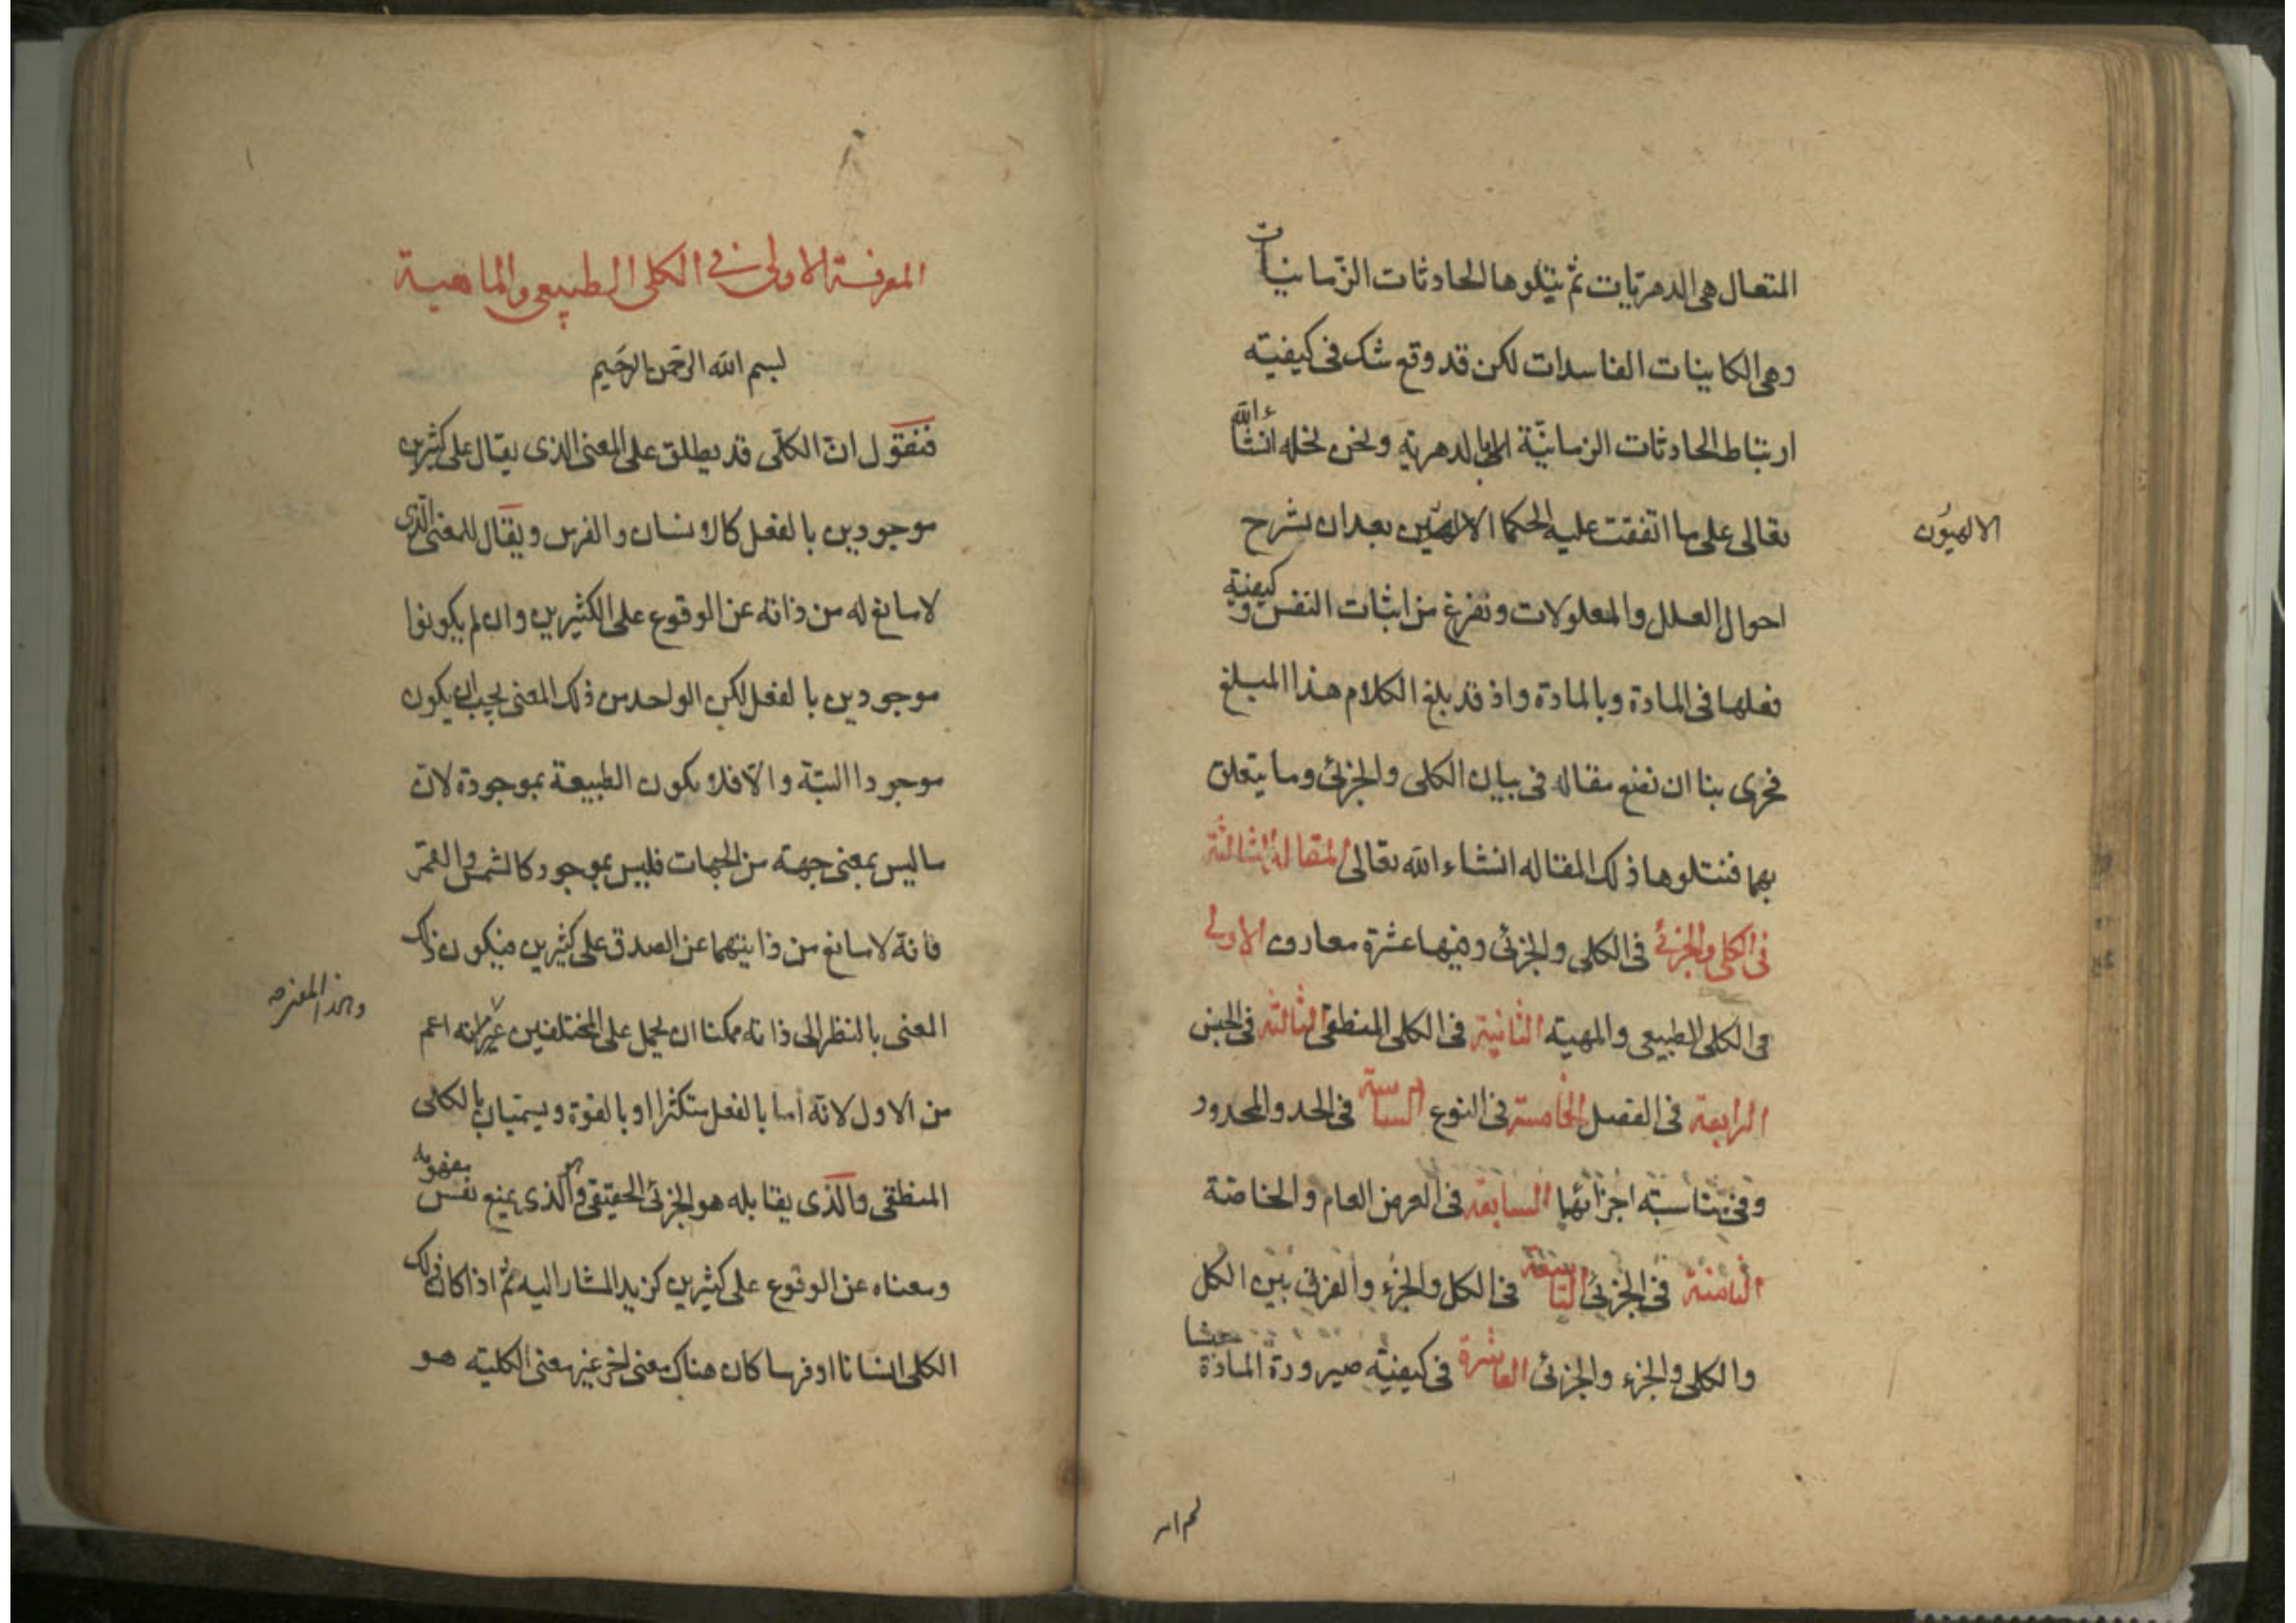 المتعال هى الدهريات ثم يتلوها الحادثات الزمانيات
وهى الكاينات الفاسدات لكن قد وقع شك فى كيفيته
ارتباط الحادثات الزمانية بالدهرية ونحن نحله انشاء الله
تعالى على ما اتفقت عليه الحكما الالهيين بعد ان نشرح
الالهيون
احوال العلل والمعلولات ونفرغ من اثبات النفس و كيفية
فعلها فى المادة وبالمادة واذ قد بلغ الكلام هذا المبلغ
فحرى بنا ان نضع مقاله فى بيان الكلى والجزئى وما يتعلق
بهما فنتلوها ذلك المقاله انشاء الله تعالى المقالة الثالثة
فى الكلى والجزئى فى الكلى والجزئى وفيها عشرة معارف الاولى
فى الكلى الطبيعى والمهية الثانية فى الكلى المنطقى الثالثة فى الجنس
الرابعة فى الفصل الخامسة فى النوع السادسة فى الحد والمحدود
وفى مناسبته اجزائها السابعة فى العرض العام والخاصة
الثامنة فى الجزئى التاسعة فى الكل والجزء والفرق بين الكل
والكلى والجزء والجزئى العاشرة فى كيفيته صيرورة المادة
المعرفة الاولى فى الكلى الطبيعى والماهية
بسم الله الرحمن الرحيم
فنقول ان الكلى قد يطلق على المعنى الذى يقال على كثيرين
موجودين بالفعل كالانسان والفرس ويقال للمعنى الذى
لا مانع له من ذاته عن الوقوع على الكثيرين وان لم يكونوا
موجودين بالفعل لكن الواحد من ذلك المعنى يجب ان يكون
موجودا البتة والا فلا يكون الطبيعة بموجودة لان
ما ليس بمعنى جهته من الجهات فليس بموجود كالشمس والقمر
فانه لا مانع من ذاتيتهما عن الصدق على كثيرين فيكون ذلك
المعنى بالنظر الى ذاته ممكنا ان يحمل على المختلفين غير انه اعم
من الاول لانه اما بالفعل متكثرا او بالقوة ويسميان بالكلى
المنطقى والذى يقابله هو الجزئى الحقيقى والذى يمنع نفس مفهومه
ومعناه عن الوقوع على كثيرين كزيد المشار اليه ثم اذا كان ذلك
الكلى انسانا او فرسا كان هناك معنى اخر غير معنى الكليته هو